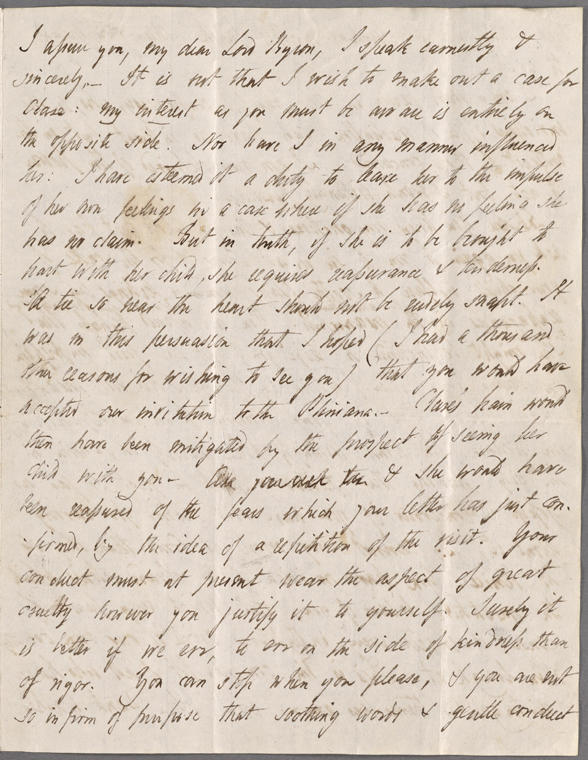 I assure you, my dear Lord Byron, I speak earnestly &
sincerely,_ It is not that I wish to make out a case for
Clare: my interest as you must be aware is entirely on
the opposite side. Nor have I in any manner influenced
her: I have esteemed it a duty to leave her to the impulse
of her own feelings in a case where if she has no feeling she
has no claim. But in truth, if she is to be brought to
part with her child, she requires reassurance & tenderness.
A tie so near the heart should not be rudely snapt. It
was in this persuasion that I hoped (I had a thousand
other reasons for wishing to see you) that you would have
accepted our invitation to the Pliniana._ Clare's pain would
then have been mitigated by the prospect of seeing her
child with you- & she would have
been reassured of the fears which your letter has just con-
firmed, by the idea of a repetition of the visit. Your
conduct must at present wear the aspect of great
cruelty however you justify it to yourself. Surely it
is better if we err, to err on the side of kindness than
of rigor. You can stop when you please, & you are not
so infirm of purpose that soothing words & gentle conduct